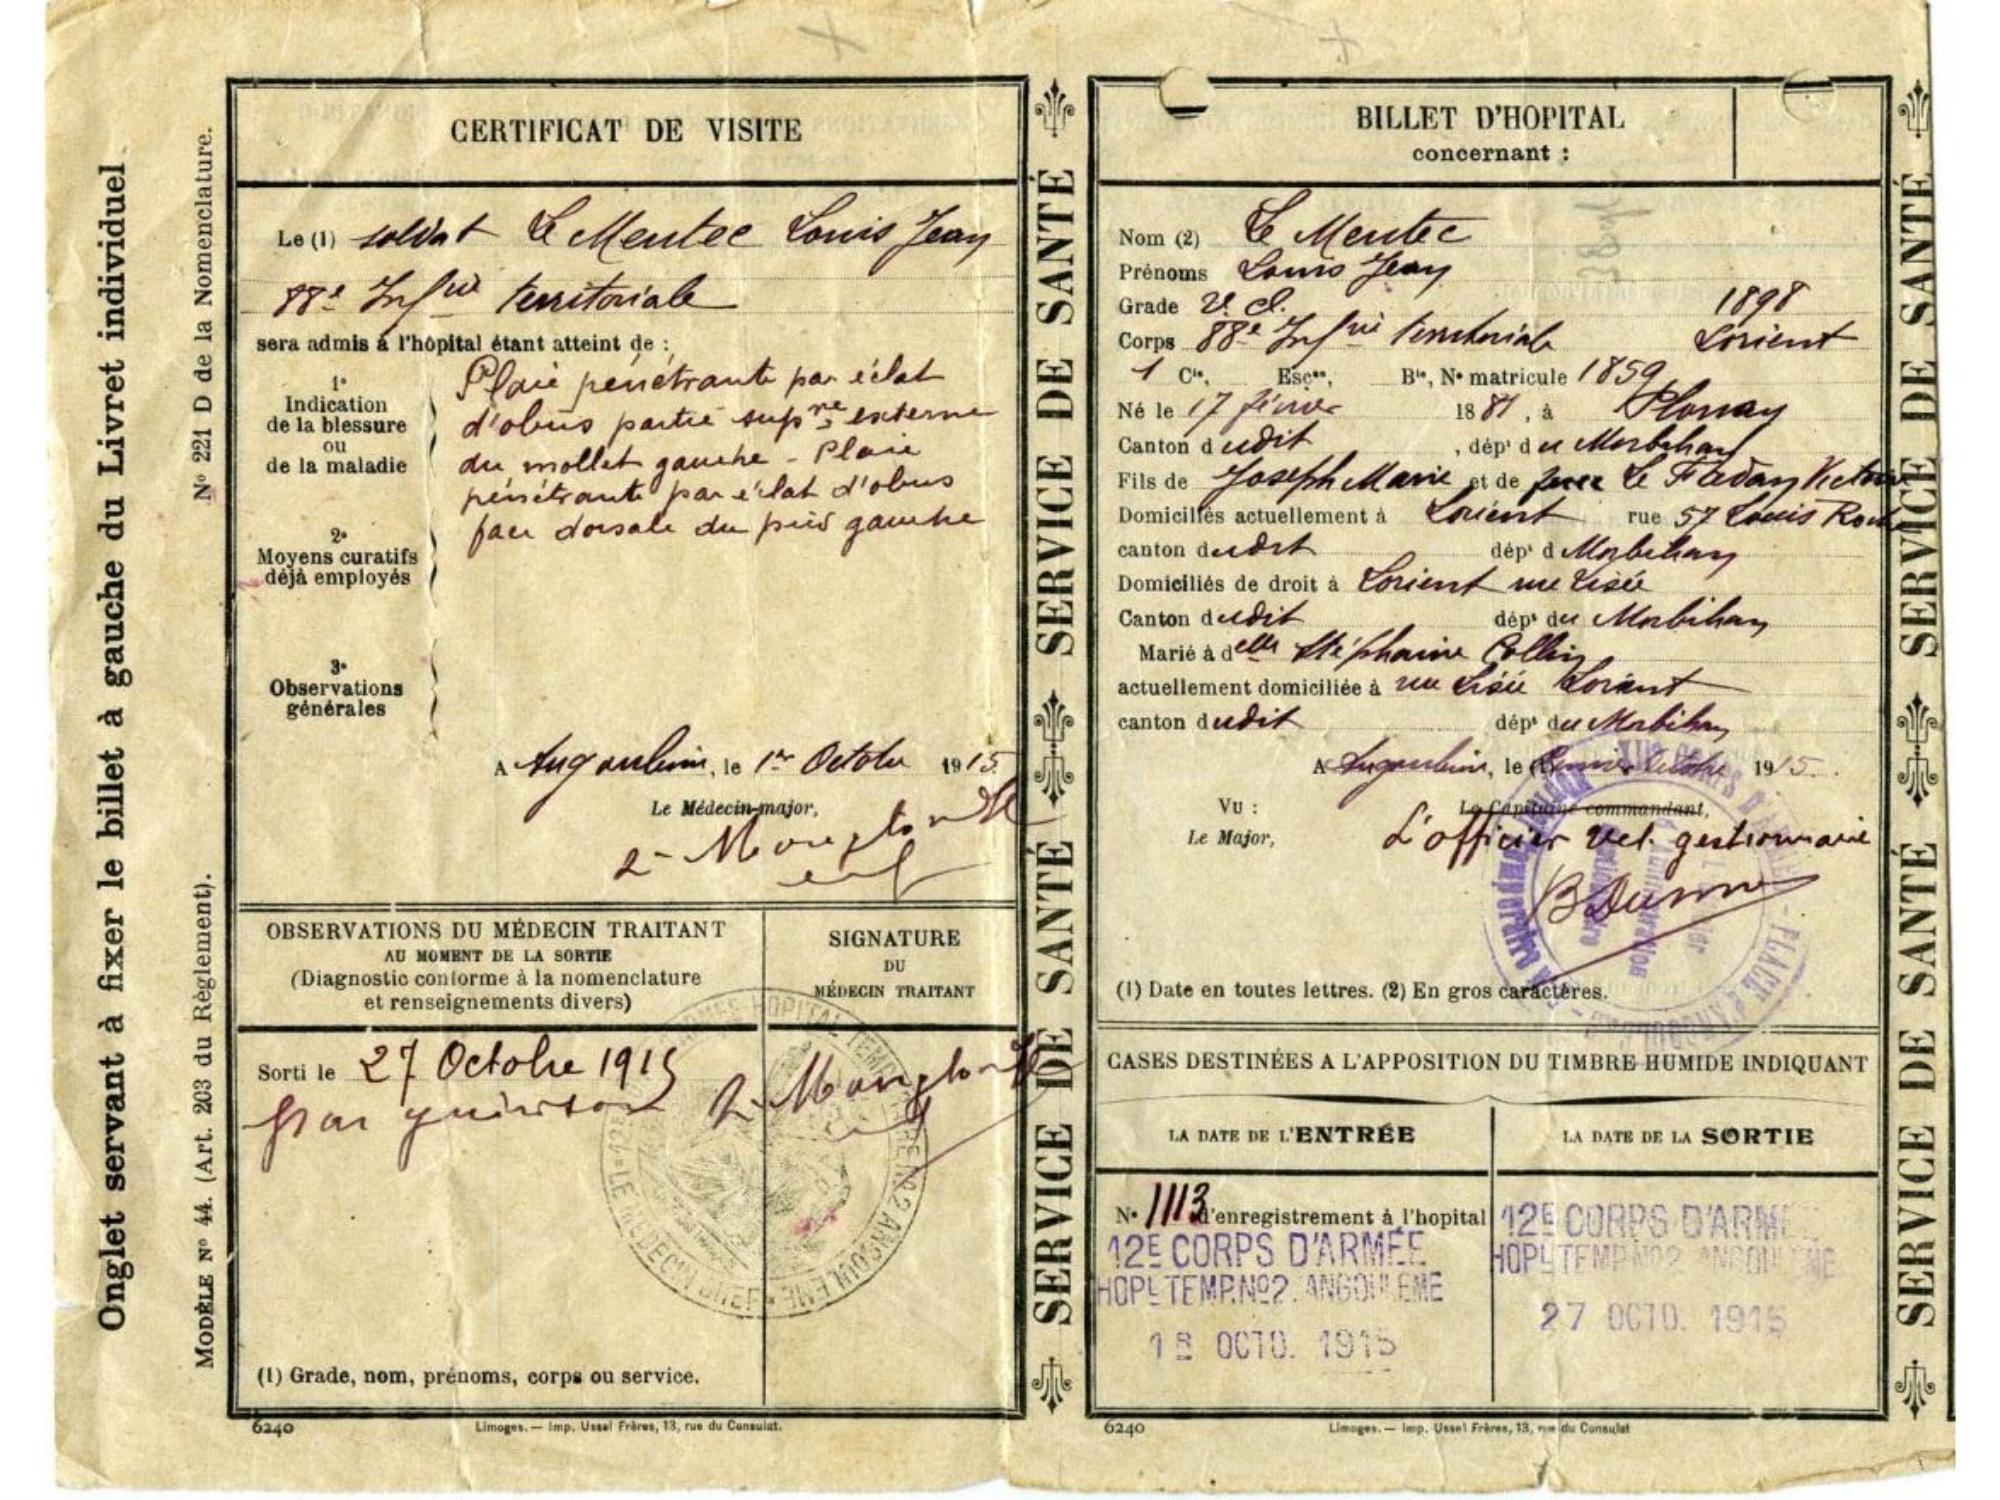 Onglet servant à fixer le billet à gauche du Livret individuel
MODÈLE Nº 44. (Art. 203 du Règlement).
Nº 221 D de la Nomenclature.
CERTIFICAT DE VISITE
Le (1) soldat Le Mentec Louis Jean
88e Infrie territoriale
sera admis à l'hôpital étant atteint de :
1º
Indication
de la blessure
ou
de la maladie
Plaie pénétrante par éclat
d'obus partie supre externe
du mollet gauche - Plaie
pénétrante par éclat d'obus
face dorsale du pied gauche
2º
Moyens curatifs
déjà employés
3º
Observations
générales
A Angoulême, le 1er Octobre 1915
Le Médecin-major,
OBSERVATIONS DU MÉDECIN TRAITANT
AU MOMENT DE LA SORTIE
(Diagnostic conforme à la nomenclature
et renseignements divers)
SIGNATURE
DU
MÉDECIN TRAITANT
Sorti le 27 Octobre 1915
par guérison
HOPITAL TEMPORAIRE Nº2 ANGOULÊME
LE MÉDECIN CHEF
(1) Grade, nom, prénoms, corps ou service.
6240
Limoges. — Imp. Ussel Frères, 13, rue du Consulat.
SERVICE DE SANTÉ
SERVICE DE SANTÉ
BILLET D'HOPITAL
concernant :
Nom (2) Le Mentec
Prénoms Louis Jean
Grade 2e cl. 1898
Corps 88e Infrie territoriale Lorient
1 Cie, Escon, Bie, Nº matricule 1859
Né le 17 février 1881, à Plouay
Canton dudit, dépt du Morbihan
Fils de Joseph Marie et de Le
Domiciliés actuellement à Lorient rue 57 Louis
canton dudit dépt d Morbihan
Domiciliés de droit à Lorient rue Lisée
Canton dudit dépt du Morbihan
Marié à delle Stéphanie Collin
actuellement domiciliée à rue Lisée Lorient
canton dudit dépt du Morbihan
A Angoulême, le (1) premier Octobre 1915.
Vu :
Le Major,
Le Capitaine commandant,
L'officier gestionnaire
(1) Date en toutes lettres. (2) En gros caractères.
CASES DESTINÉES A L'APPOSITION DU TIMBRE HUMIDE INDIQUANT
LA DATE DE L'ENTRÉE
LA DATE DE LA SORTIE
Nº 1113 d'enregistrement à l'hopital
12E CORPS D'ARMÉE
HOPL TEMP. Nº2. ANGOULEME
OCTO. 1915
12E CORPS D'ARMÉE
HOPL TEMP. Nº2 ANGOULEME
27 OCTO. 1915
6240
Limoges. — Imp. Ussel Frères, 13, rue du Consulat
SERVICE DE SANTÉ
SERVICE DE SANTÉ